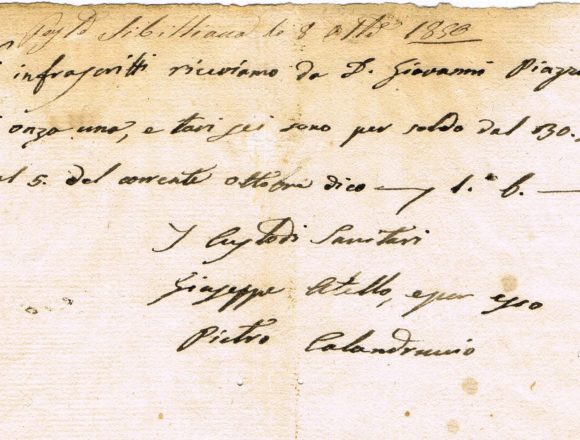 li 8 8bre 1850
infrascritti riceviamo da D. Giovanni Piazza
onza una, e tarì sei sono per soldo dal 30.
al 5. del corrente ottobre dico — 1.6. —
I Custodi Sanitari
Giuseppe Atello, e per esso
Pietro Calandruccio